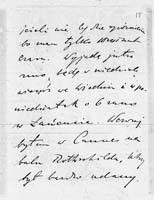 15
jeżeli nie
bo mam tylko
rano. Wyjadę jutro
rano, będę w niedzielę
wieczór we Wiedniu i w po
niedziałek o 6 rano
w Łańcucie. Wczoraj
byłem w Cannes na
balu Rothschilda, który
był bardzo udany